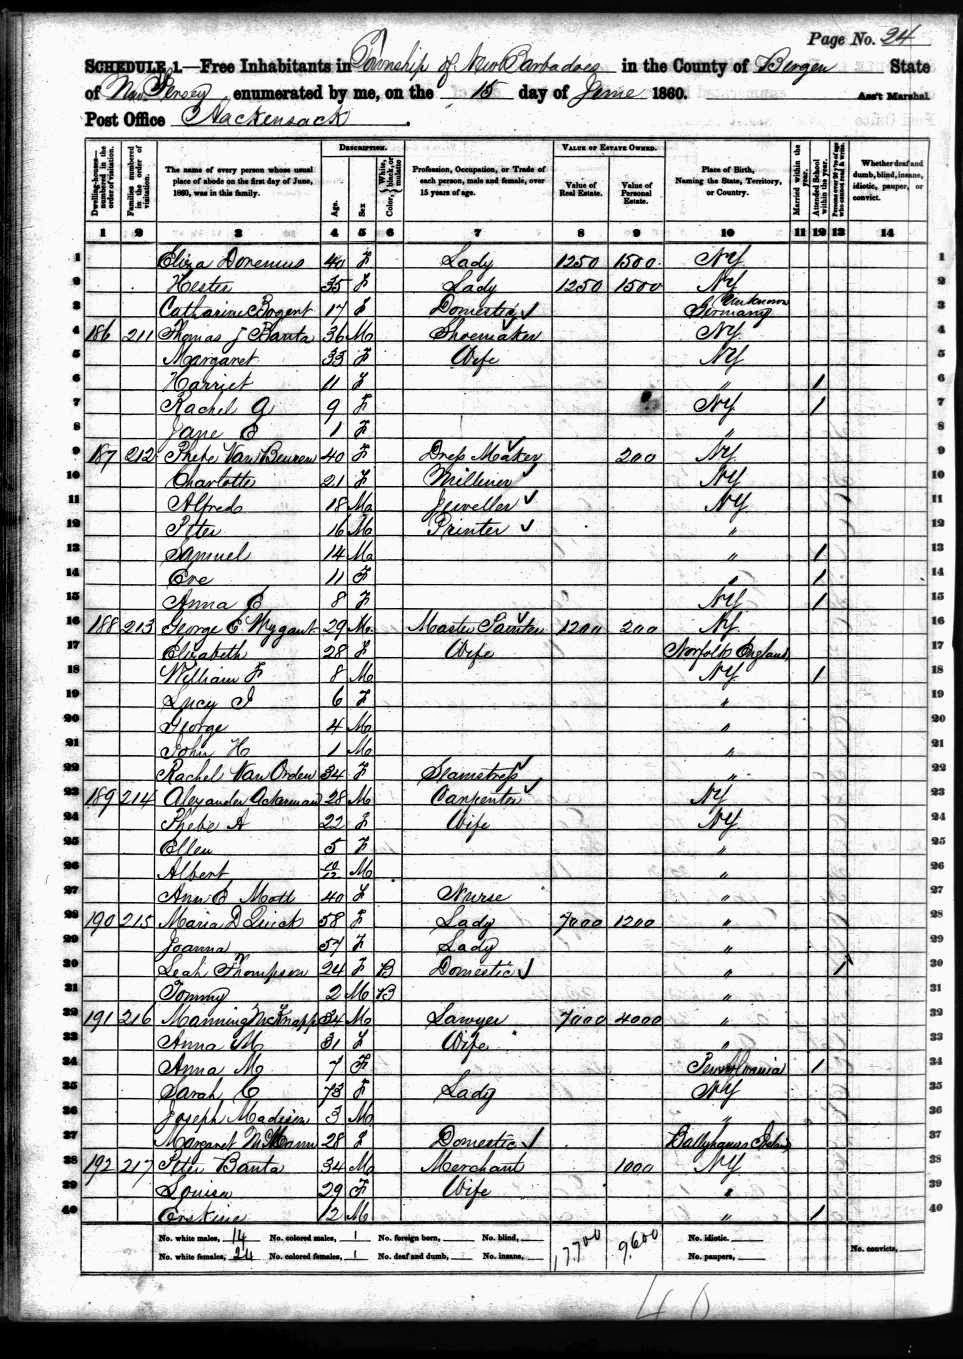 Page No. 24
SCHEDULE 1.—Free Inhabitants in Township of New Barbadoes in the County of Bergen State
of New Jersey enumerated by me, on the 15 day of June 1860. Ass't Marshal
Post Office Hackensack.
Dwelling-houses—numbered in the order of visitation. Families numbered in the order of visitation. The name of every person whose usual place of abode on the first day of June, 1860, was in this family. DESCRIPTION. Age. Sex Color, White, black, or mulatto Profession, Occupation, or Trade of each person, male and female, over 15 years of age. VALUE OF ESTATE OWNED. Value of Real Estate. Value of Personal Estate. Place of Birth, Naming the State, Territory, or Country. Married within the year. Attended School within the year. Persons over 20 y'rs of age who cannot read & write. Whether deaf and dumb, blind, insane, idiotic, pauper, or convict.
1 2 3 4 5 6 7 8 9 10 11 12 13 14
1 Eliza Doremus 40 F Lady 1250 1500 NY 1
2 Hester 35 F Lady 1250 1500 NY 2
3 Catharine Bogert 17 F Domestic Unknown Germany 3
4 186 211 Thomas J Banta 36 M Shoemaker NY 4
5 Margaret 33 F Wife NY 5
6 Harriet 11 F " 1 6
7 Rachel A 9 F NY 1 7
8 Jane E 1 F " 8
9 187 212 Phebe Van Beuren 40 F Dress Maker 200 NY 9
10 Charlotte 21 F Milliner NY 10
11 Alfred 18 M Jeweller NY 11
12 Peter 16 M Printer " 12
13 Samuel 14 M " 1 13
14 Eve 11 F " 1 14
15 Anna E 8 F NY 1 15
16 188 213 George E Wygant 29 M Master Painter 1200 200 NY 16
17 Elizabeth 28 F Wife Norfolk England 17
18 William F 8 M NY 1 18
19 Lucy J 6 F " 19
20 George 4 M " 20
21 John H 1 M " 21
22 Rachel Van Orden 34 F Seamstress " 22
23 189 214 Alexander Ackerman 28 M Carpenter NY 23
24 Phebe A 22 F Wife NY 24
25 Ellen 5 F " 25
26 Albert 10/12 M " 26
27 Ann E Mott 40 F Nurse " 27
28 190 215 Maria D 58 F Lady 7000 1200 " 28
29 Joanna 57 F Lady " 29
30 Leah Thompson 24 F B Domestic " 1 30
31 Tommy 2 M B " 31
32 191 216 Manning M Knapp 34 M Lawyer 7000 4000 " 32
33 Anna M 31 F Wife " 33
34 Anna M 7 F Pennsylvania 1 34
35 Sarah C 73 F Lady NY 35
36 Joseph Madison 3 M " 36
37 Margaret 28 F Domestic 37
38 192 217 Peter Banta 34 M Merchant 1000 NY 38
39 Louisa 29 F Wife " 39
40 Erskine 12 M " 1 40
No. white males, 14 No. colored males, 1 No. foreign born, No. blind, 17,700 9,600 No. idiotic,
No. white females, 24 No. colored females, 1 No. deaf and dumb, No. insane, No. paupers, No. convicts,
40